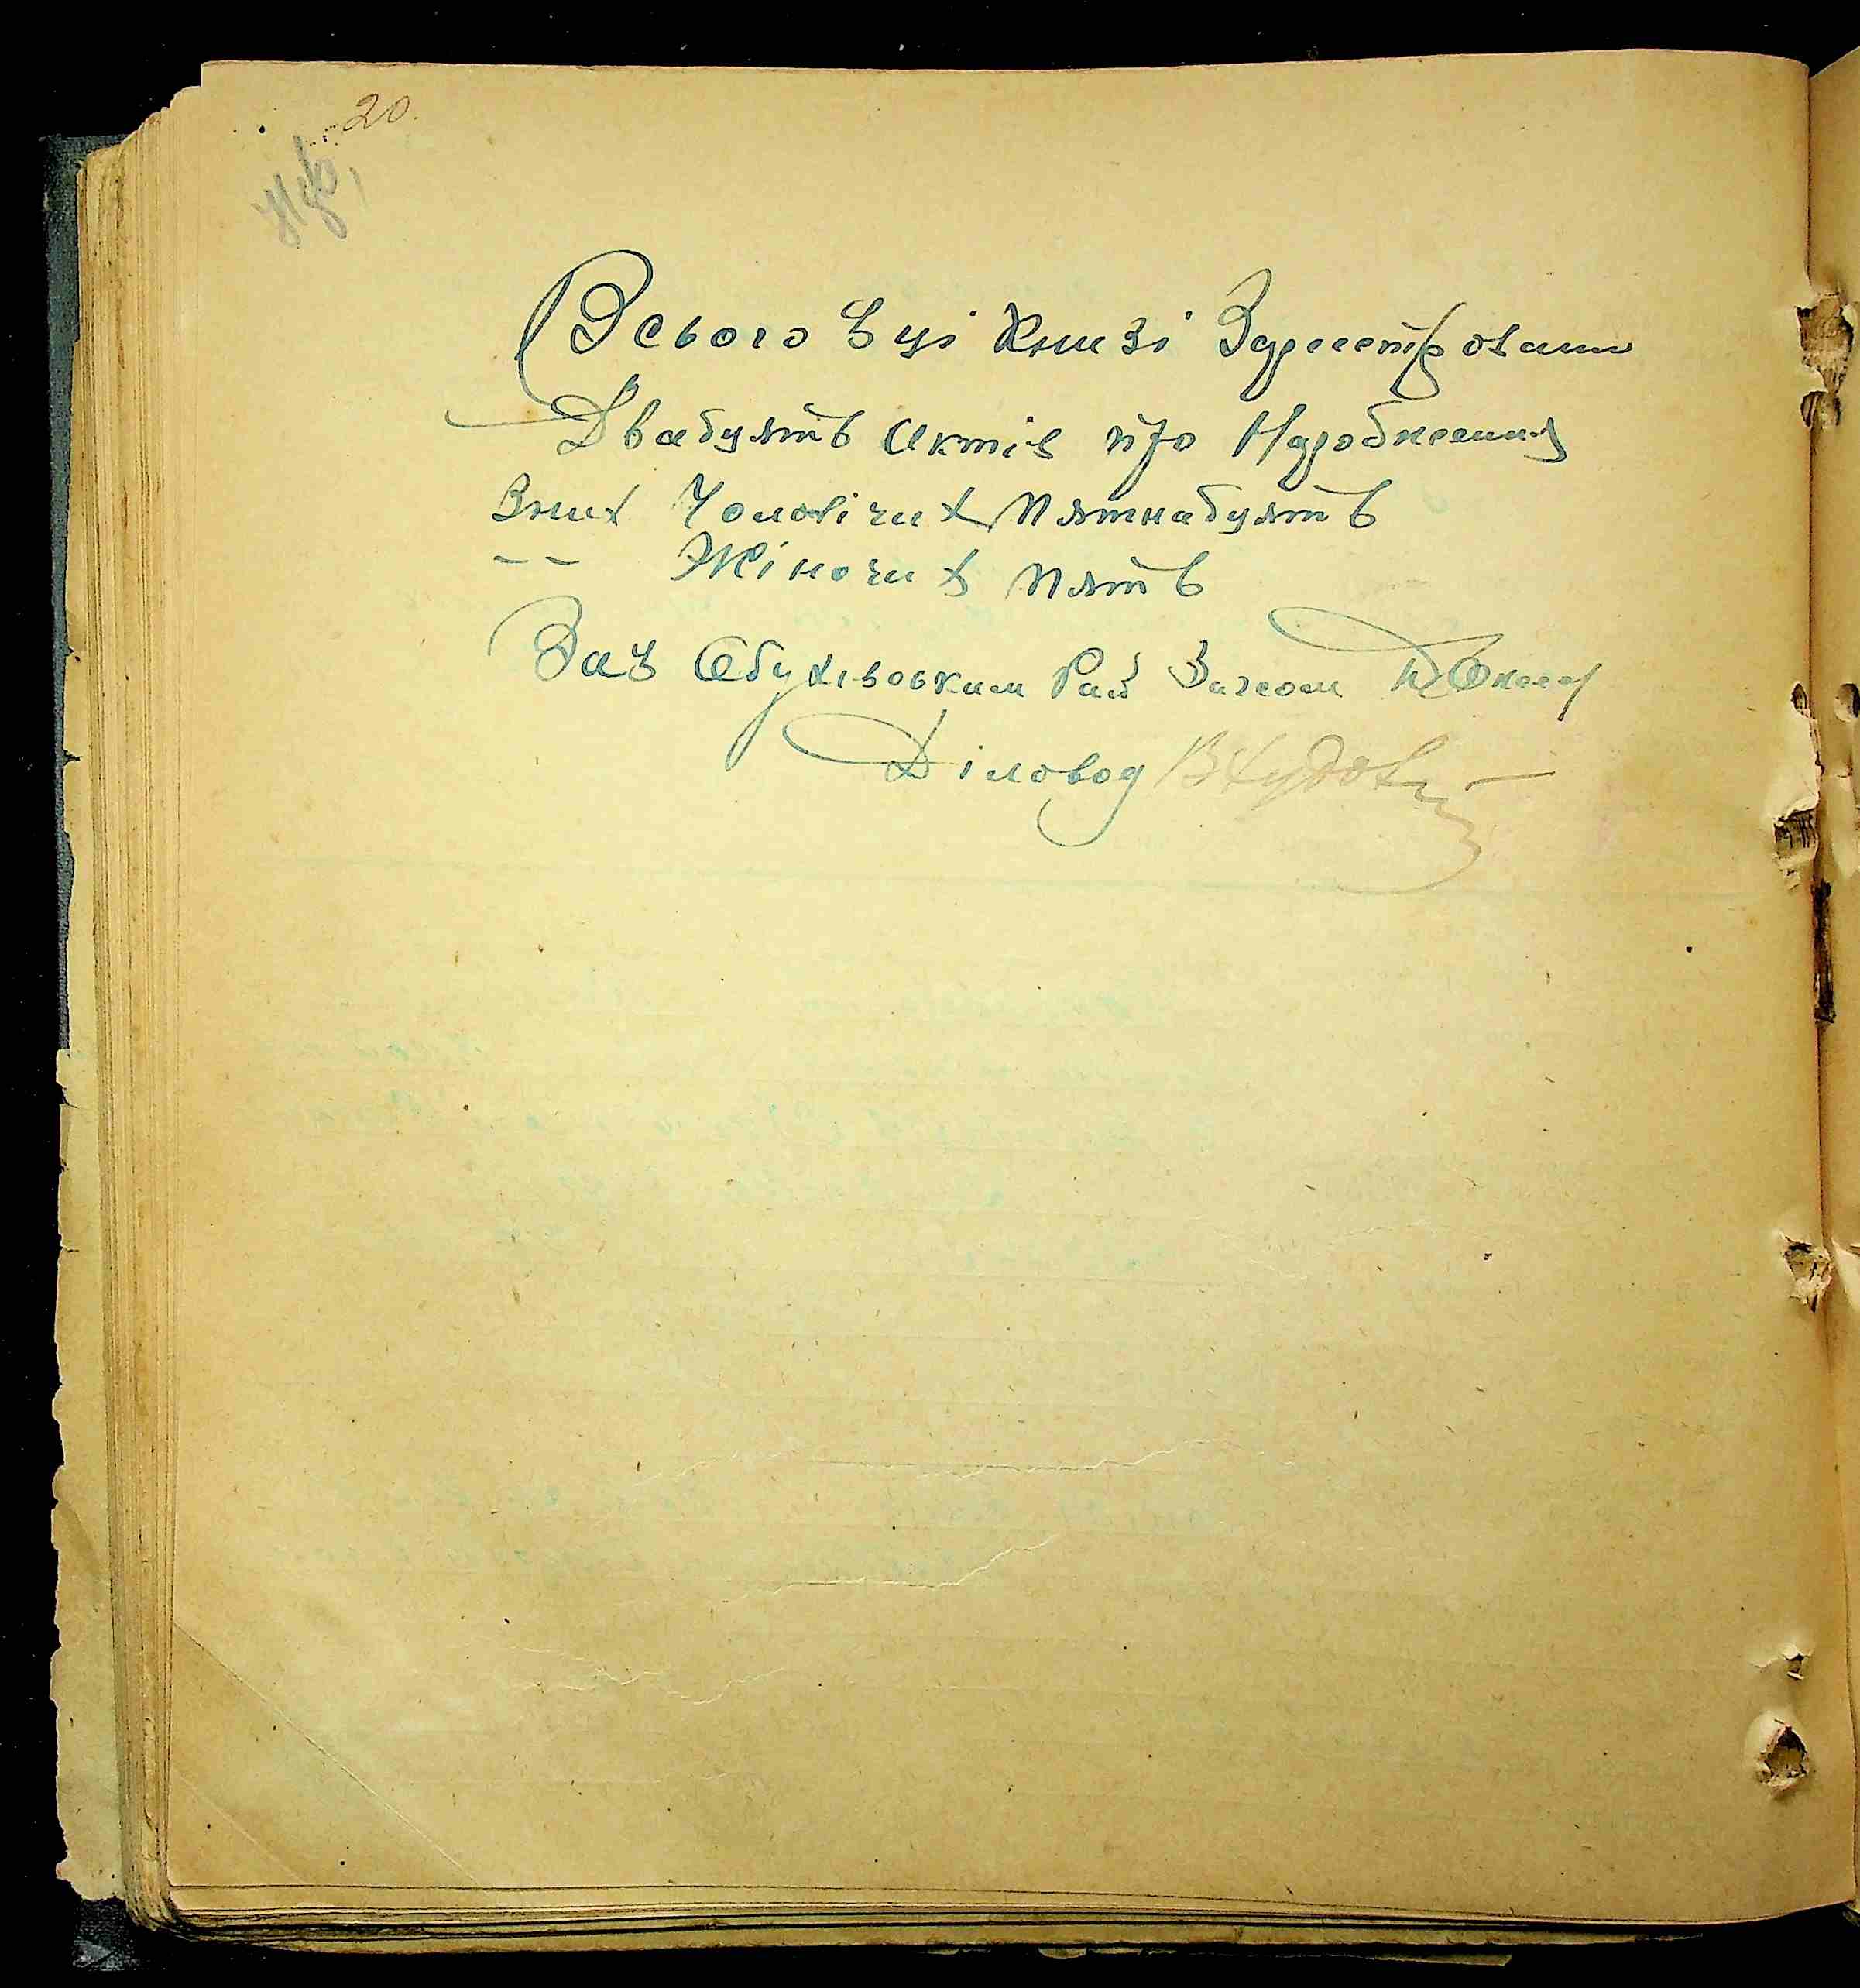 20.
Всього в ці Книзі Зареєстровани
Двадцять актів про Народження
Зних Чоловічих Пятнадцять
— — Жіночих Пять
Зав Обухівським Рай Загсом
Діловод